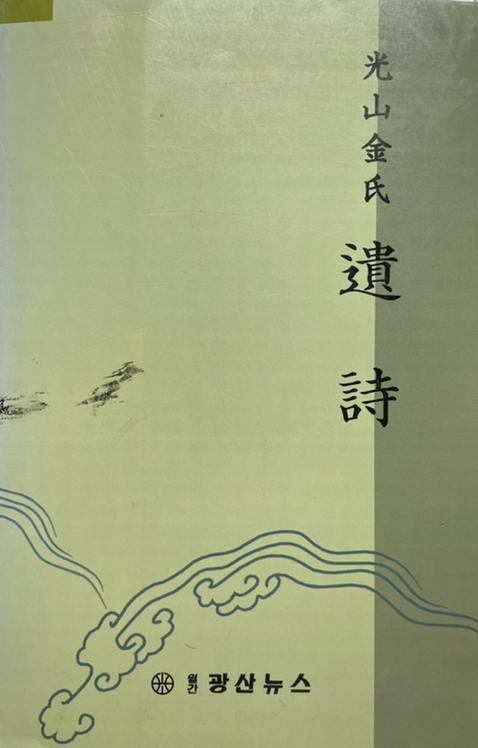 光山金氏
遺詩
월간 광산뉴스